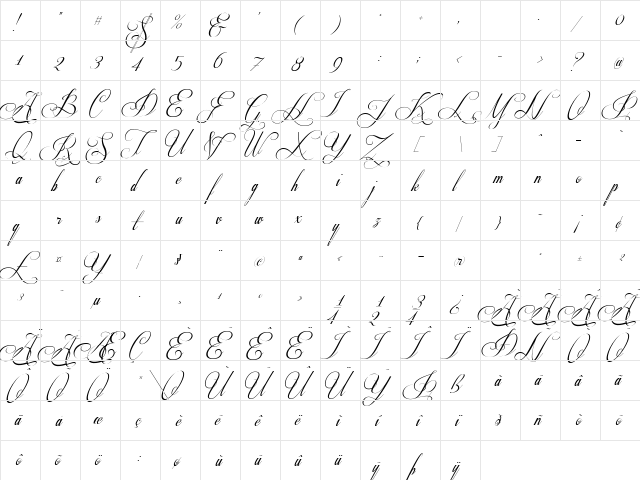 ! " # $ % & ' ( ) * + , - . / 0
1 2 3 4 5 6 7 8 9 : ; < = > ? @
A B C D E F G H I J K L M N O P
Q R S T U V W X Y Z [ \ ] ^ _ `
a b c d e f g h i j k l m n o p
q r s t u v w x y z { | } ~ ¡ ¢
£ ¤ ¥ ¦ § ¨ © ª « ¬ ­ ® ¯ ° ± ²
³ ´ µ · ¸ ¹ º » ¼ ½ ¾ ¿ À Á Â Ã
Ä Å Æ Ç È É Ê Ë Ì Í Î Ï Ð Ñ Ò Ó
Ô Õ Ö × Ø Ù Ú Û Ü Ý Þ ß à á â ã
ä å æ ç è é ê ë ì í î ï ð ñ ò ó
ô õ ö ÷ ø ù ú û ü ý þ ÿ